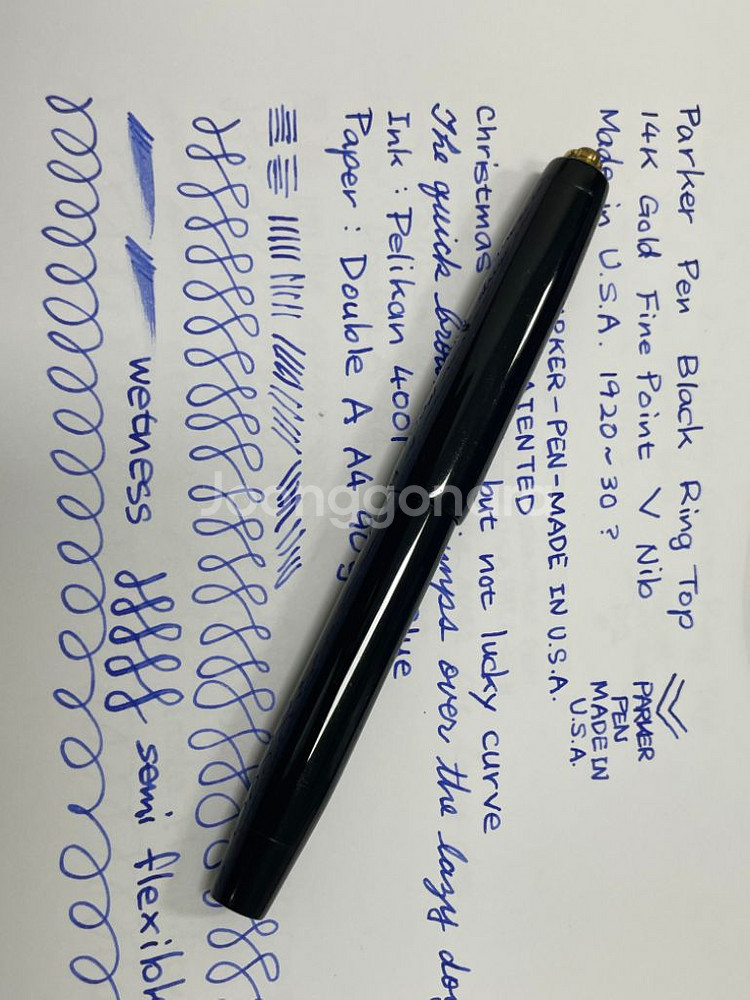 Parker Pen Black Ring Top
14K Gold Fine Point V Nib
Made in U.S.A. 1920~30?
PARKER
PEN
MADE IN
U.S.A.
RKER-PEN-MADE IN U.S.A.
ATENTED
Christmas but not lucky curve
The quick brow umps over the lazy do
Ink : Pelikan 4001 lue
Paper : Double A A4 90g
wetness semi flexibl
Joonggonara